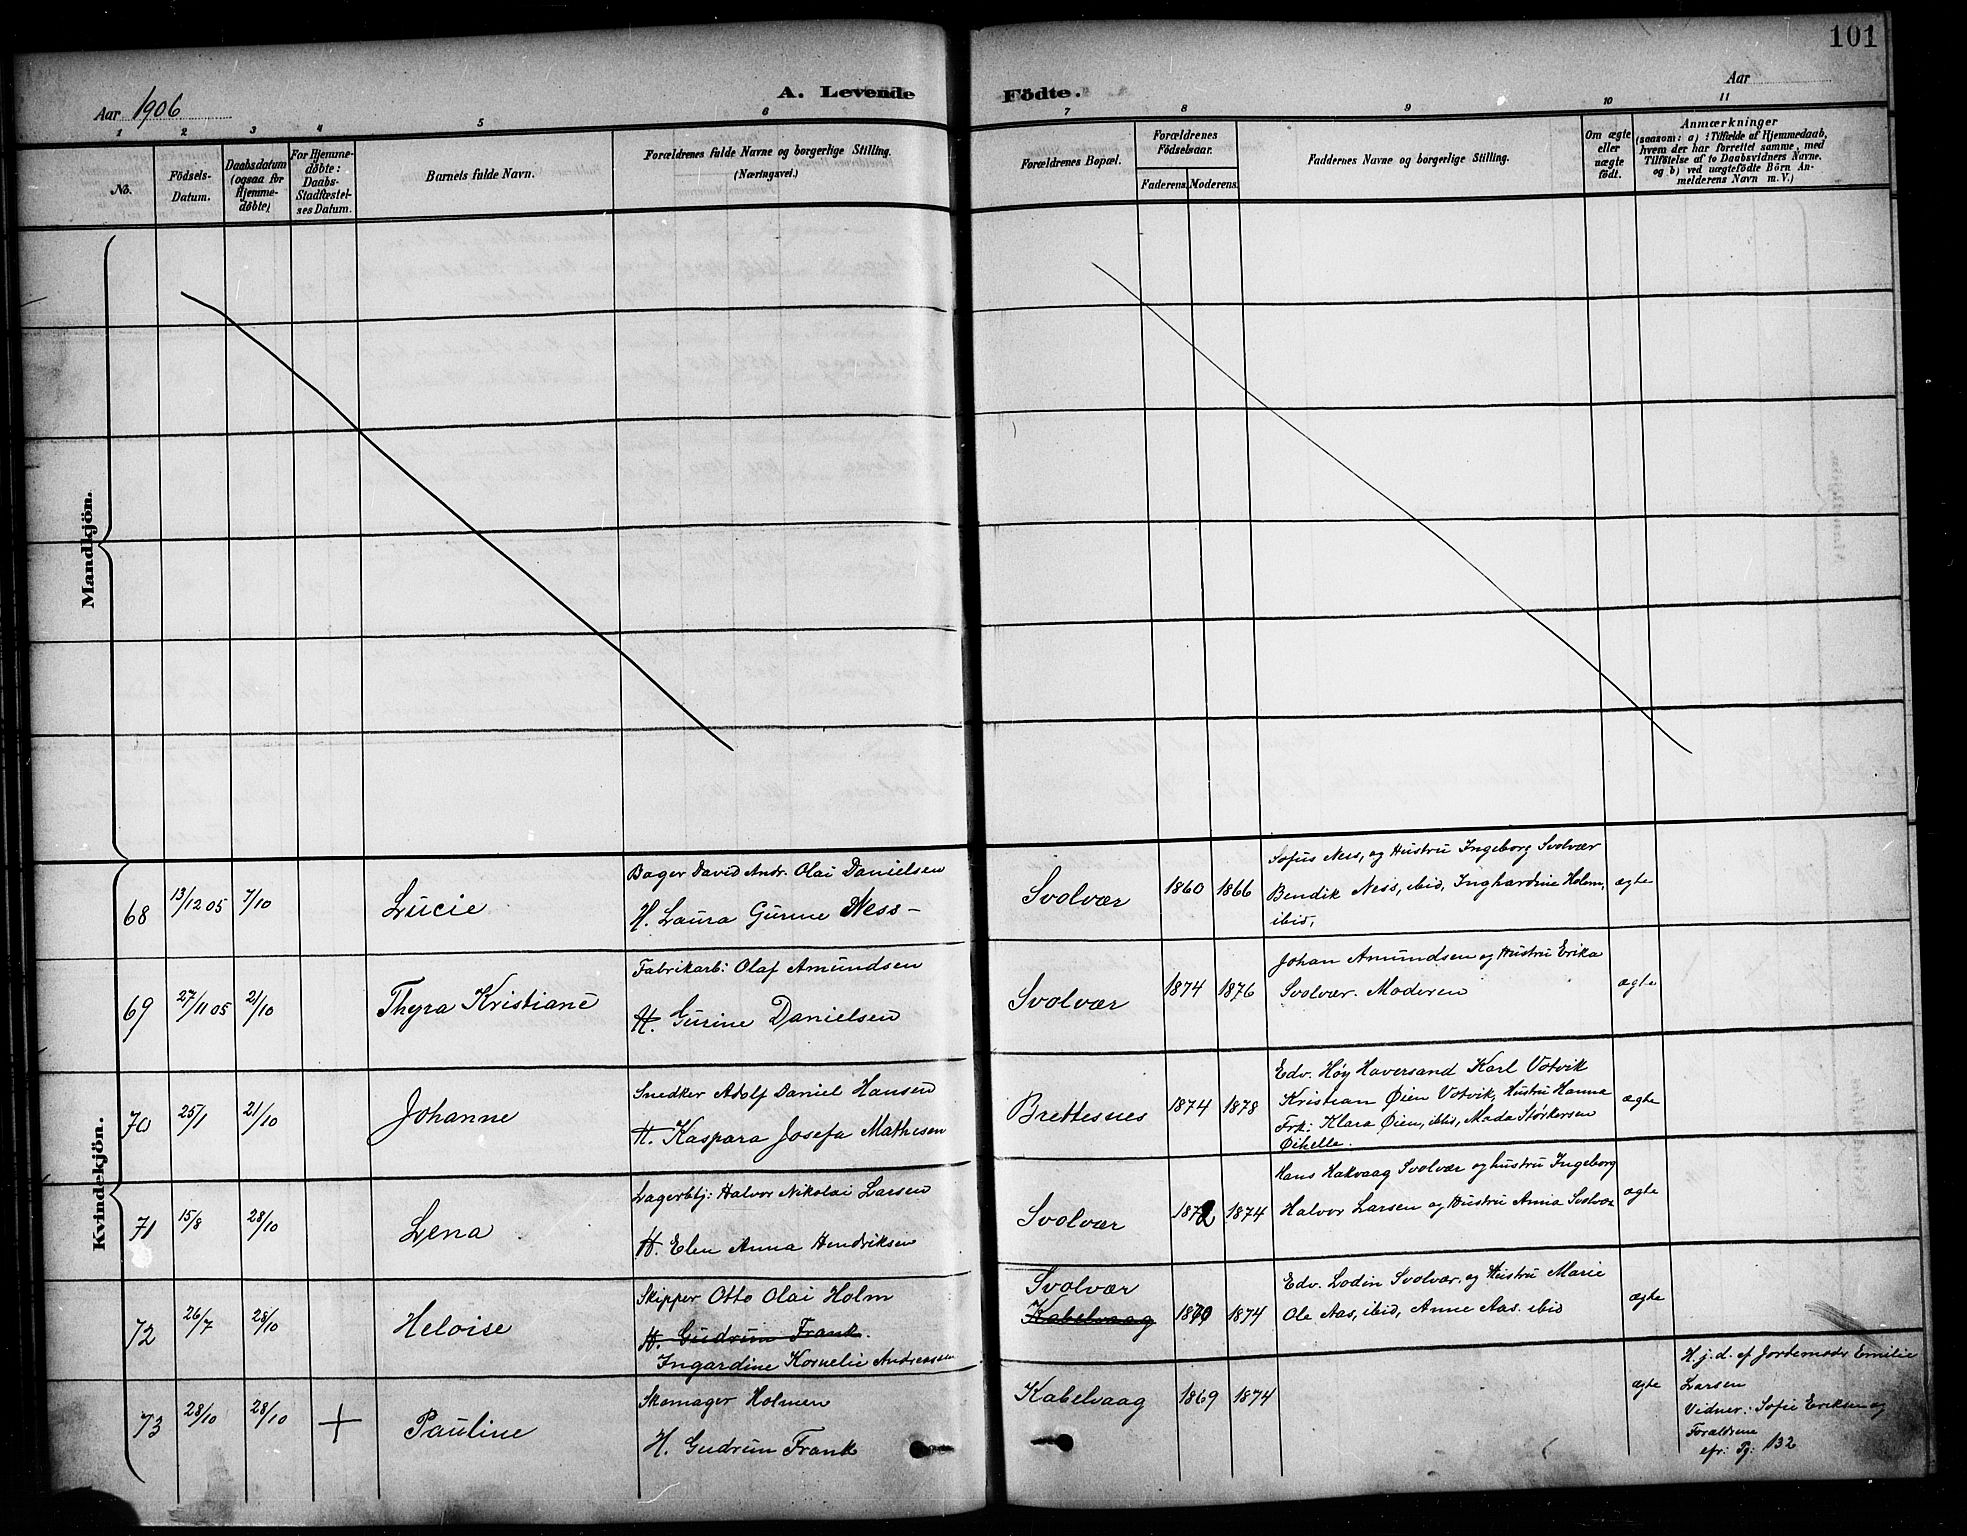 101
Aar 1906
A. Levende Födte.
Aar
1 2 3 4 5 6 7 8 9 10 11
No.
Födsels-
Datum.
Daabsdatum
(ogsaa for
Hjemme-
døbte)
For Hjemme-
døbte:
Daabs-
Stadfæstel-
ses Datum.
Barnets fulde Navn.
Forældrenes fulde Navne og borgerlige Stilling.
(Næringsvei.)
Forældrenes Bopæl.
Forældrenes
Födselsaar.
Faderens. Moderens.
Faddernes Navne og borgerlige Stilling.
Om ægte
eller
uægte
født.
Anmærkninger
(saasom: a) i Tilfælde af Hjemmedaab,
hvem der har forrettet samme, med
Tilföielse af to Daabsvidners Navne,
og b) ved uægtefödte Börn An-
melderens Navn m. V.)
Mandkjön.
Kvindekjön.
68 13/12 05 7/10 Lucie
Bager David Andr. Olai Danielsen
H. Laura Gurine Ness -
Svolvær 1860 1866
Sofus Ness, og Hustru Ingeborg Svolvær
Bendik Ness, ibid, Inghardine Holm,
ibid,
ægte
69 27/11 05 21/10 Thyra Kristiane
Fabrikarb: Olaf Amundsen
H. Gurine Danielsen
Svolvær 1874 1876
Johan Amundsen og Hustru Erika
Svolvær. Moderen
ægte
70 25/1 21/10 Johanne
Snedker Adolf Daniel Hansen
H. Kaspara Josefa Mathisen
Brettesnes 1874 1878
Edv. Høy Haversand Karl Votvik
Kristian Øien Votvik, Hustru Hanna
Frk: Klara Øien, ibid, Mada Størkersen
ægte
71 15/8 28/10 Lena
Lagerbtj: Halvor Nikolai Larsen
H. Elen Anna Hendriksen
Svolvær 1872 1874
Hans Hakvaag Svolvær og hustru Ingeborg
Halvor Larsen og Hustru Anna Svolvær
ægte
72 26/7 28/10 Heloise
Skipper Otto Olai Holm
H. Gudrun Frank.
Ingardine Kornelie Andreassen
Svolvær
Kabelvaag
1870 1874
Edv. Lodin Svolvær. og Hustru Marie
Ole Aas, ibid, Anne Aas. ibid
ægte
73 28/10 28/10 + Pauline
Skomager Holmen
H. Gudrun Frank
Kabelvaag 1869 1874
ægte
H. j. d. af Jordemoder Emilie
Larsen
Vidner: Sofie Eriksen og
Forældrene
cfr: Pg: 132